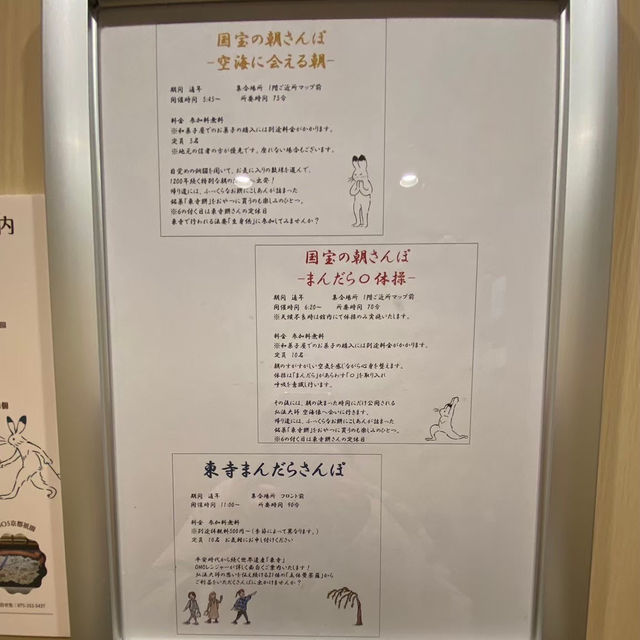 国宝の朝さんぽ
-空海に会える朝-
期間 通年　集合場所 1階ご近所マップ前
開催時間 5:45～　所要時間 75分
料金 参加料無料
※和菓子屋でのお菓子の購入には別途料金がかかります。
定員 5名
※地元の信者の方が優先です。座れない場合もございます。
目覚めの銅鑼を聞いて、お気に入りの数珠を選んで、
1200年続く特別な朝の
出発!
帰り道には、ふっくらなお餅にこしあんが詰まった
銘菓「東寺餅」をおやつに買うのも楽しみのひとつ。
※6の付く日は東寺餅さんの定休日
東寺で行われる法要「生身供」に参加してみませんか?
国宝の朝さんぽ
-まんだら〇体操-
期間 通年　集合場所 1階ご近所マップ前
開催時間 6:20～　所要時間 70分
※天候不良時は館内にて体操のみ実施いたします。
料金 参加料無料
※和菓子屋でのお菓子の購入には別途料金がかかります。
定員 10名
朝のすがすがしい空気を感じながら心身を整えます。
体操は「まんだら」があらわす「〇」を取り入れ
呼吸を意識し行います。
その後には、朝の決まった時間にだけ公開される
弘法大師 空海像へ会いに行きます。
帰り道には、ふっくらなお餅にこしあんが詰まった
銘菓「東寺餅」をおやつに買うのも楽しみのひとつ。
※6の付く日は東寺餅さんの定休日
東寺まんだらさんぽ
期間 通年　集合場所 フロント前
開催時間 11:00～　所要時間 90分
料金 参加料無料
※別途拝観料500円～(季節によって異なります。)
定員 10名 お気軽にお申し付けください
平安時代から続く世界遺産「東寺」
OMOレンジャーが詳しく面白くご案内いたします!
弘法大師の思いを伝え続ける21体の「立体曼荼羅」から
ご利益をいただくさんぽに出かけませんか?
内
O5京都祇園
075-353-5437